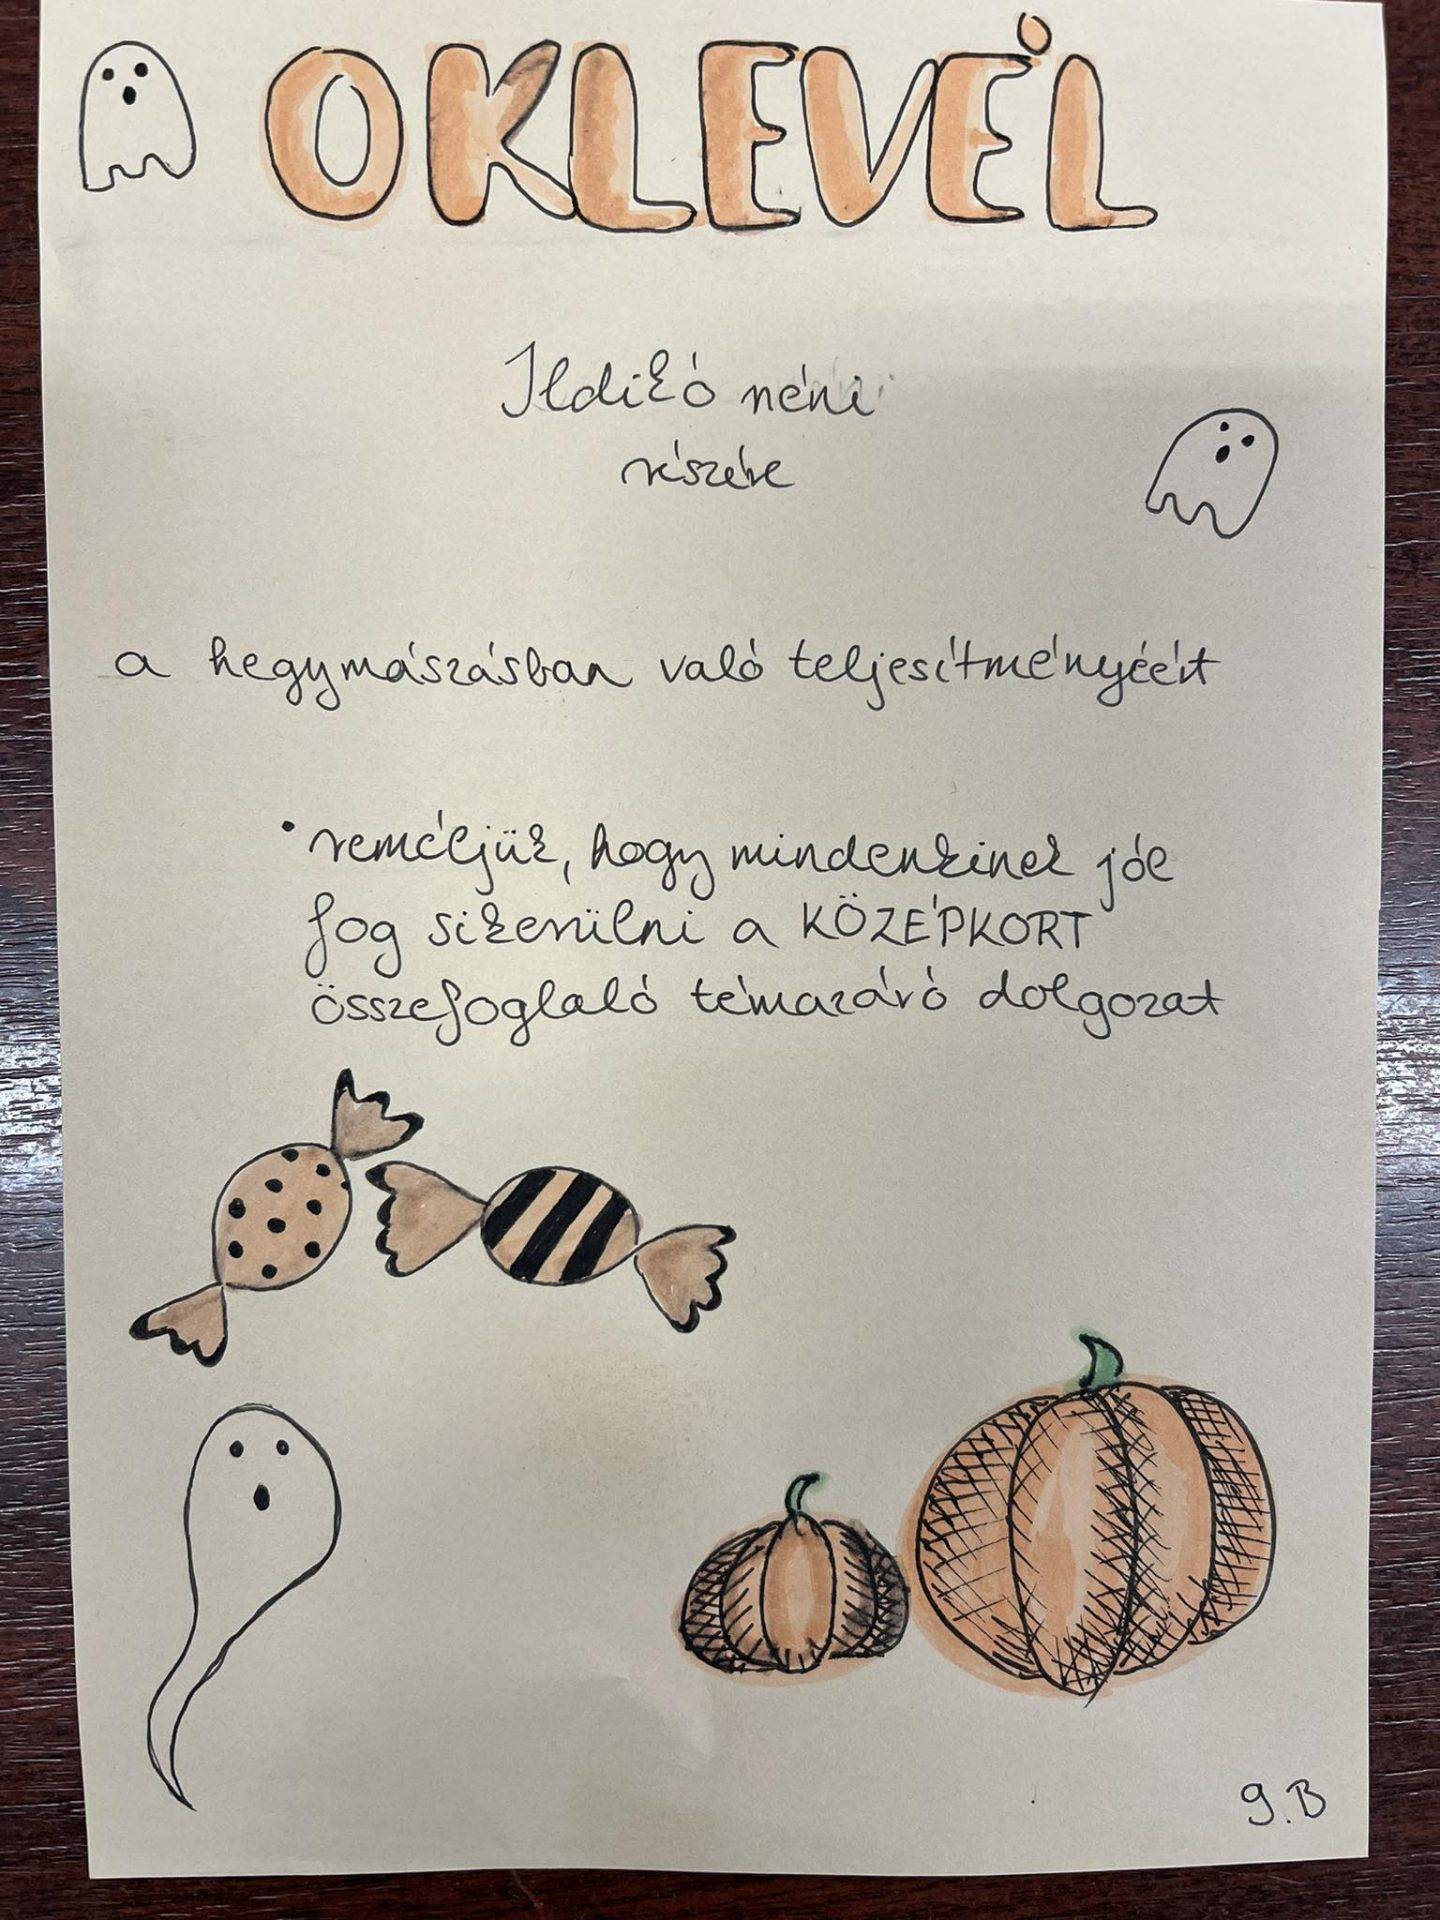 OKLEVÉL
Ildikó néni
részére
a hegymászásban való teljesítményéért
• reméljük, hogy mindenkinek jól
fog sikerülni a KÖZÉPKORT
összefoglaló témazáró dolgozat
9.B